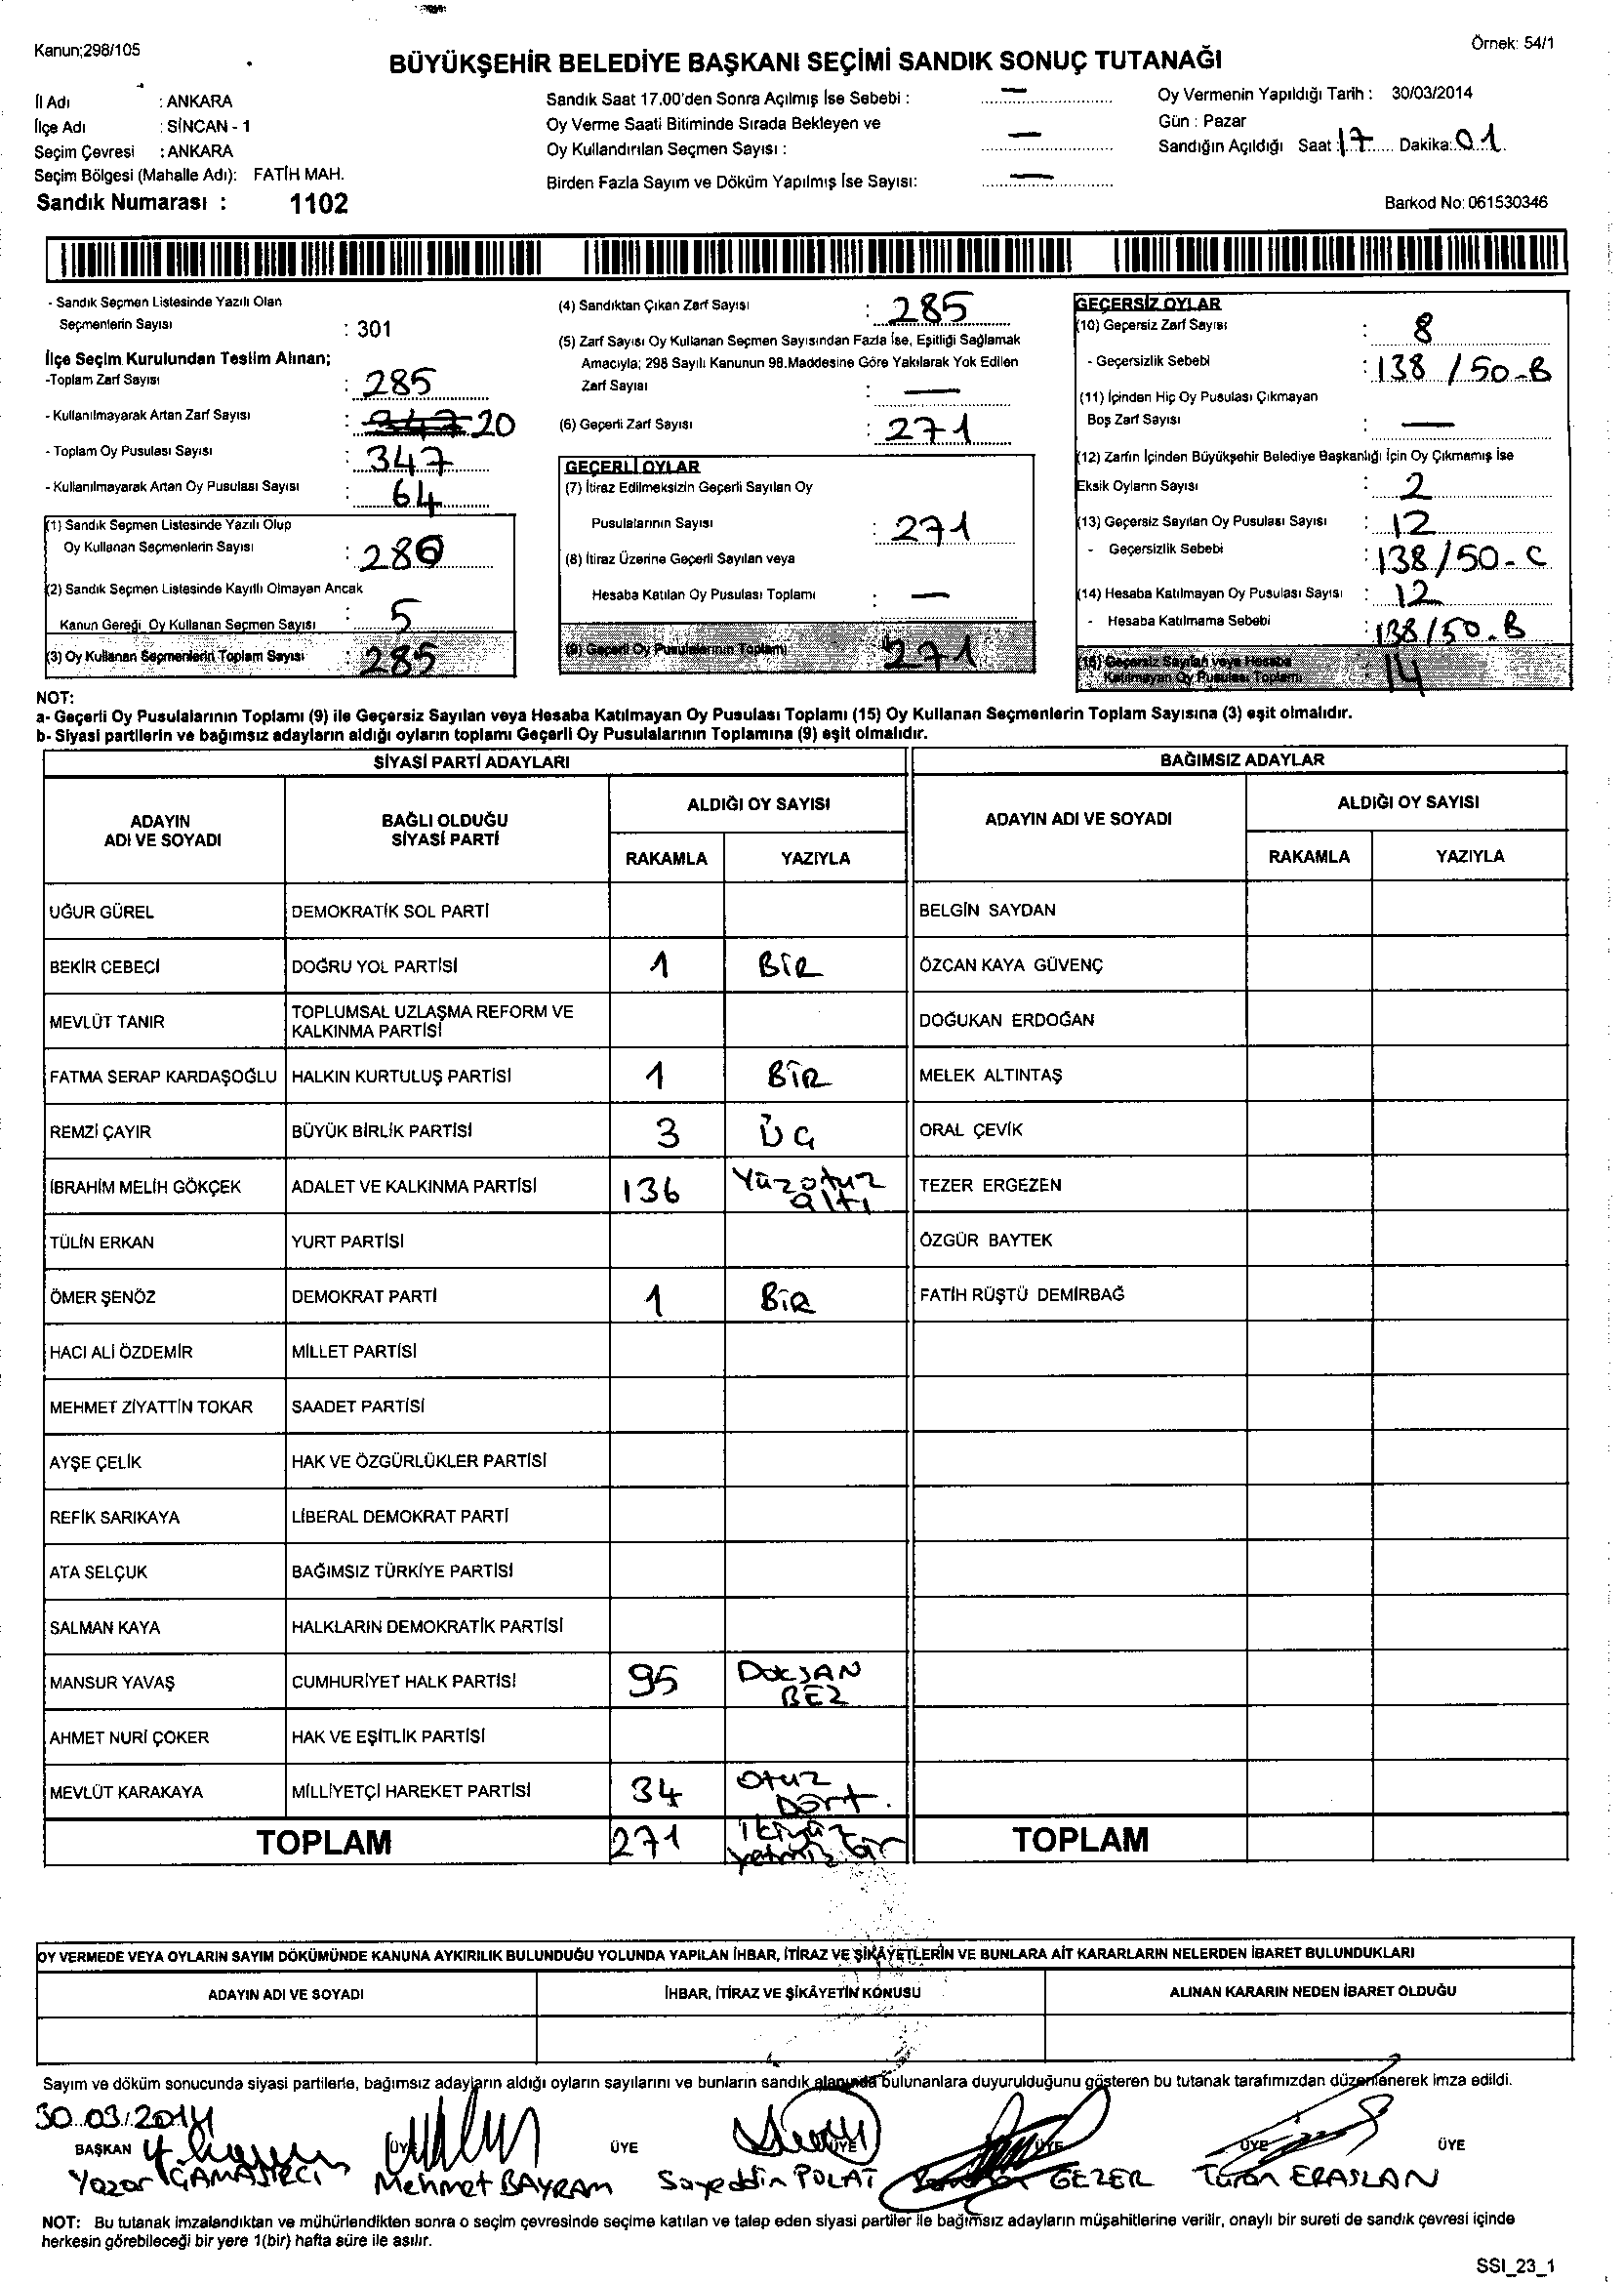 Kanun;298/105
Örnek: 54/1
BÜYÜKŞEHİR BELEDİYE BAŞKANI SEÇİMİ SANDIK SONUÇ TUTANAĞI
İl Adı : ANKARA
İlçe Adı : SİNCAN - 1
Seçim Çevresi : ANKARA
Seçim Bölgesi (Mahalle Adı): FATİH MAH.
Sandık Numarası : 1102
Sandık Saat 17.00'den Sonra Açılmış İse Sebebi : —
Oy Verme Saati Bitiminde Sırada Bekleyen ve
Oy Kullandırılan Seçmen Sayısı : —
Birden Fazla Sayım ve Döküm Yapılmış İse Sayısı: —
Oy Vermenin Yapıldığı Tarih : 30/03/2014
Gün : Pazar
Sandığın Açıldığı Saat : 17 Dakika: 01
Barkod No: 061530346
- Sandık Seçmen Listesinde Yazılı Olan
Seçmenlerin Sayısı : 301
İlçe Seçim Kurulundan Teslim Alınan;
-Toplam Zarf Sayısı : 285
- Kullanılmayarak Artan Zarf Sayısı : 347 20
- Toplam Oy Pusulası Sayısı : 347
- Kullanılmayarak Artan Oy Pusulası Sayısı : 64
(1) Sandık Seçmen Listesinde Yazılı Olup
Oy Kullanan Seçmenlerin Sayısı : 280
(2) Sandık Seçmen Listesinde Kayıtlı Olmayan Ancak
Kanun Gereği Oy Kullanan Seçmen Sayısı : 5
(3) Oy Kullanan Seçmenlerin Toplam Sayısı : 285
(4) Sandıktan Çıkan Zarf Sayısı : 285
(5) Zarf Sayısı Oy Kullanan Seçmen Sayısından Fazla İse, Eşitliği Sağlamak
Amacıyla; 298 Sayılı Kanunun 98.Maddesine Göre Yakılarak Yok Edilen
Zarf Sayısı : —
(6) Geçerli Zarf Sayısı : 271
GEÇERLİ OYLAR
(7) İtiraz Edilmeksizin Geçerli Sayılan Oy
Pusulalarının Sayısı : 271
(8) İtiraz Üzerine Geçerli Sayılan veya
Hesaba Katılan Oy Pusulası Toplamı : —
(9) Geçerli Oy Pusulalarının Toplamı 271
GEÇERSİZ OYLAR
(10) Geçersiz Zarf Sayısı : 8
- Geçersizlik Sebebi : 138 / 50-B
(11) İçinden Hiç Oy Pusulası Çıkmayan
Boş Zarf Sayısı : —
(12) Zarfın İçinden Büyükşehir Belediye Başkanlığı İçin Oy Çıkmamış İse
Eksik Oyların Sayısı : 2
(13) Geçersiz Sayılan Oy Pusulası Sayısı : 12
- Geçersizlik Sebebi : 138/50-C
(14) Hesaba Katılmayan Oy Pusulası Sayısı : 12
- Hesaba Katılmama Sebebi : 138/50.B
(15) Geçersiz Sayılan veya Hesaba
Katılmayan Oy Pusulası Toplamı : 14
NOT:
a- Geçerli Oy Pusulalarının Toplamı (9) ile Geçersiz Sayılan veya Hesaba Katılmayan Oy Pusulası Toplamı (15) Oy Kullanan Seçmenlerin Toplam Sayısına (3) eşit olmalıdır.
b- Siyasi partilerin ve bağımsız adayların aldığı oyların toplamı Geçerli Oy Pusulalarının Toplamına (9) eşit olmalıdır.
SİYASİ PARTİ ADAYLARI BAĞIMSIZ ADAYLAR
ADAYIN ADI VE SOYADI BAĞLI OLDUĞU SİYASİ PARTİ ALDIĞI OY SAYISI ADAYIN ADI VE SOYADI ALDIĞI OY SAYISI
RAKAMLA YAZIYLA RAKAMLA YAZIYLA
UĞUR GÜREL DEMOKRATİK SOL PARTİ BELGİN SAYDAN
BEKİR CEBECİ DOĞRU YOL PARTİSİ 1 BİR ÖZCAN KAYA GÜVENÇ
MEVLÜT TANIR TOPLUMSAL UZLAŞMA REFORM VE KALKINMA PARTİSİ DOĞUKAN ERDOĞAN
FATMA SERAP KARDAŞOĞLU HALKIN KURTULUŞ PARTİSİ 1 BİR MELEK ALTINTAŞ
REMZİ ÇAYIR BÜYÜK BİRLİK PARTİSİ 3 ÜÇ ORAL ÇEVİK
İBRAHİM MELİH GÖKÇEK ADALET VE KALKINMA PARTİSİ 136 Yüzotuz altı TEZER ERGEZEN
TÜLİN ERKAN YURT PARTİSİ ÖZGÜR BAYTEK
ÖMER ŞENÖZ DEMOKRAT PARTİ 1 BİR FATİH RÜŞTÜ DEMİRBAĞ
HACI ALİ ÖZDEMİR MİLLET PARTİSİ
MEHMET ZİYATTİN TOKAR SAADET PARTİSİ
AYŞE ÇELİK HAK VE ÖZGÜRLÜKLER PARTİSİ
REFİK SARIKAYA LİBERAL DEMOKRAT PARTİ
ATA SELÇUK BAĞIMSIZ TÜRKİYE PARTİSİ
SALMAN KAYA HALKLARIN DEMOKRATİK PARTİSİ
MANSUR YAVAŞ CUMHURİYET HALK PARTİSİ 95 DOKSAN BEZ
AHMET NURİ ÇOKER HAK VE EŞİTLİK PARTİSİ
MEVLÜT KARAKAYA MİLLİYETÇİ HAREKET PARTİSİ 34 Otuz Dört.
TOPLAM 271 İkiyüz yetmiş bir TOPLAM
OY VERMEDE VEYA OYLARIN SAYIM DÖKÜMÜNDE KANUNA AYKIRILIK BULUNDUĞU YOLUNDA YAPILAN İHBAR, İTİRAZ VE ŞİKÂYETLERİN VE BUNLARA AİT KARARLARIN NELERDEN İBARET BULUNDUKLARI
ADAYIN ADI VE SOYADI İHBAR, İTİRAZ VE ŞİKÂYETİN KONUSU ALINAN KARARIN NEDEN İBARET OLDUĞU
Sayım ve döküm sonucunda siyasi partilerle, bağımsız adayların aldığı oyların sayılarını ve bunların sandık alanında bulunanlara duyurulduğunu gösteren bu tutanak tarafımızdan düzenlenerek imza edildi.
30.03.2014
BAŞKAN ÜYE ÜYE ÜYE ÜYE ÜYE ÜYE
Mehmet BAYRAM POLAT GEZER Turan ERASLAN
NOT: Bu tutanak imzalandıktan ve mühürlendikten sonra o seçim çevresinde seçime katılan ve talep eden siyasi partiler ile bağımsız adayların müşahitlerine verilir, onaylı bir sureti de sandık çevresi içinde
herkesin görebileceği bir yere 1(bir) hafta süre ile asılır.
SSI_23_1